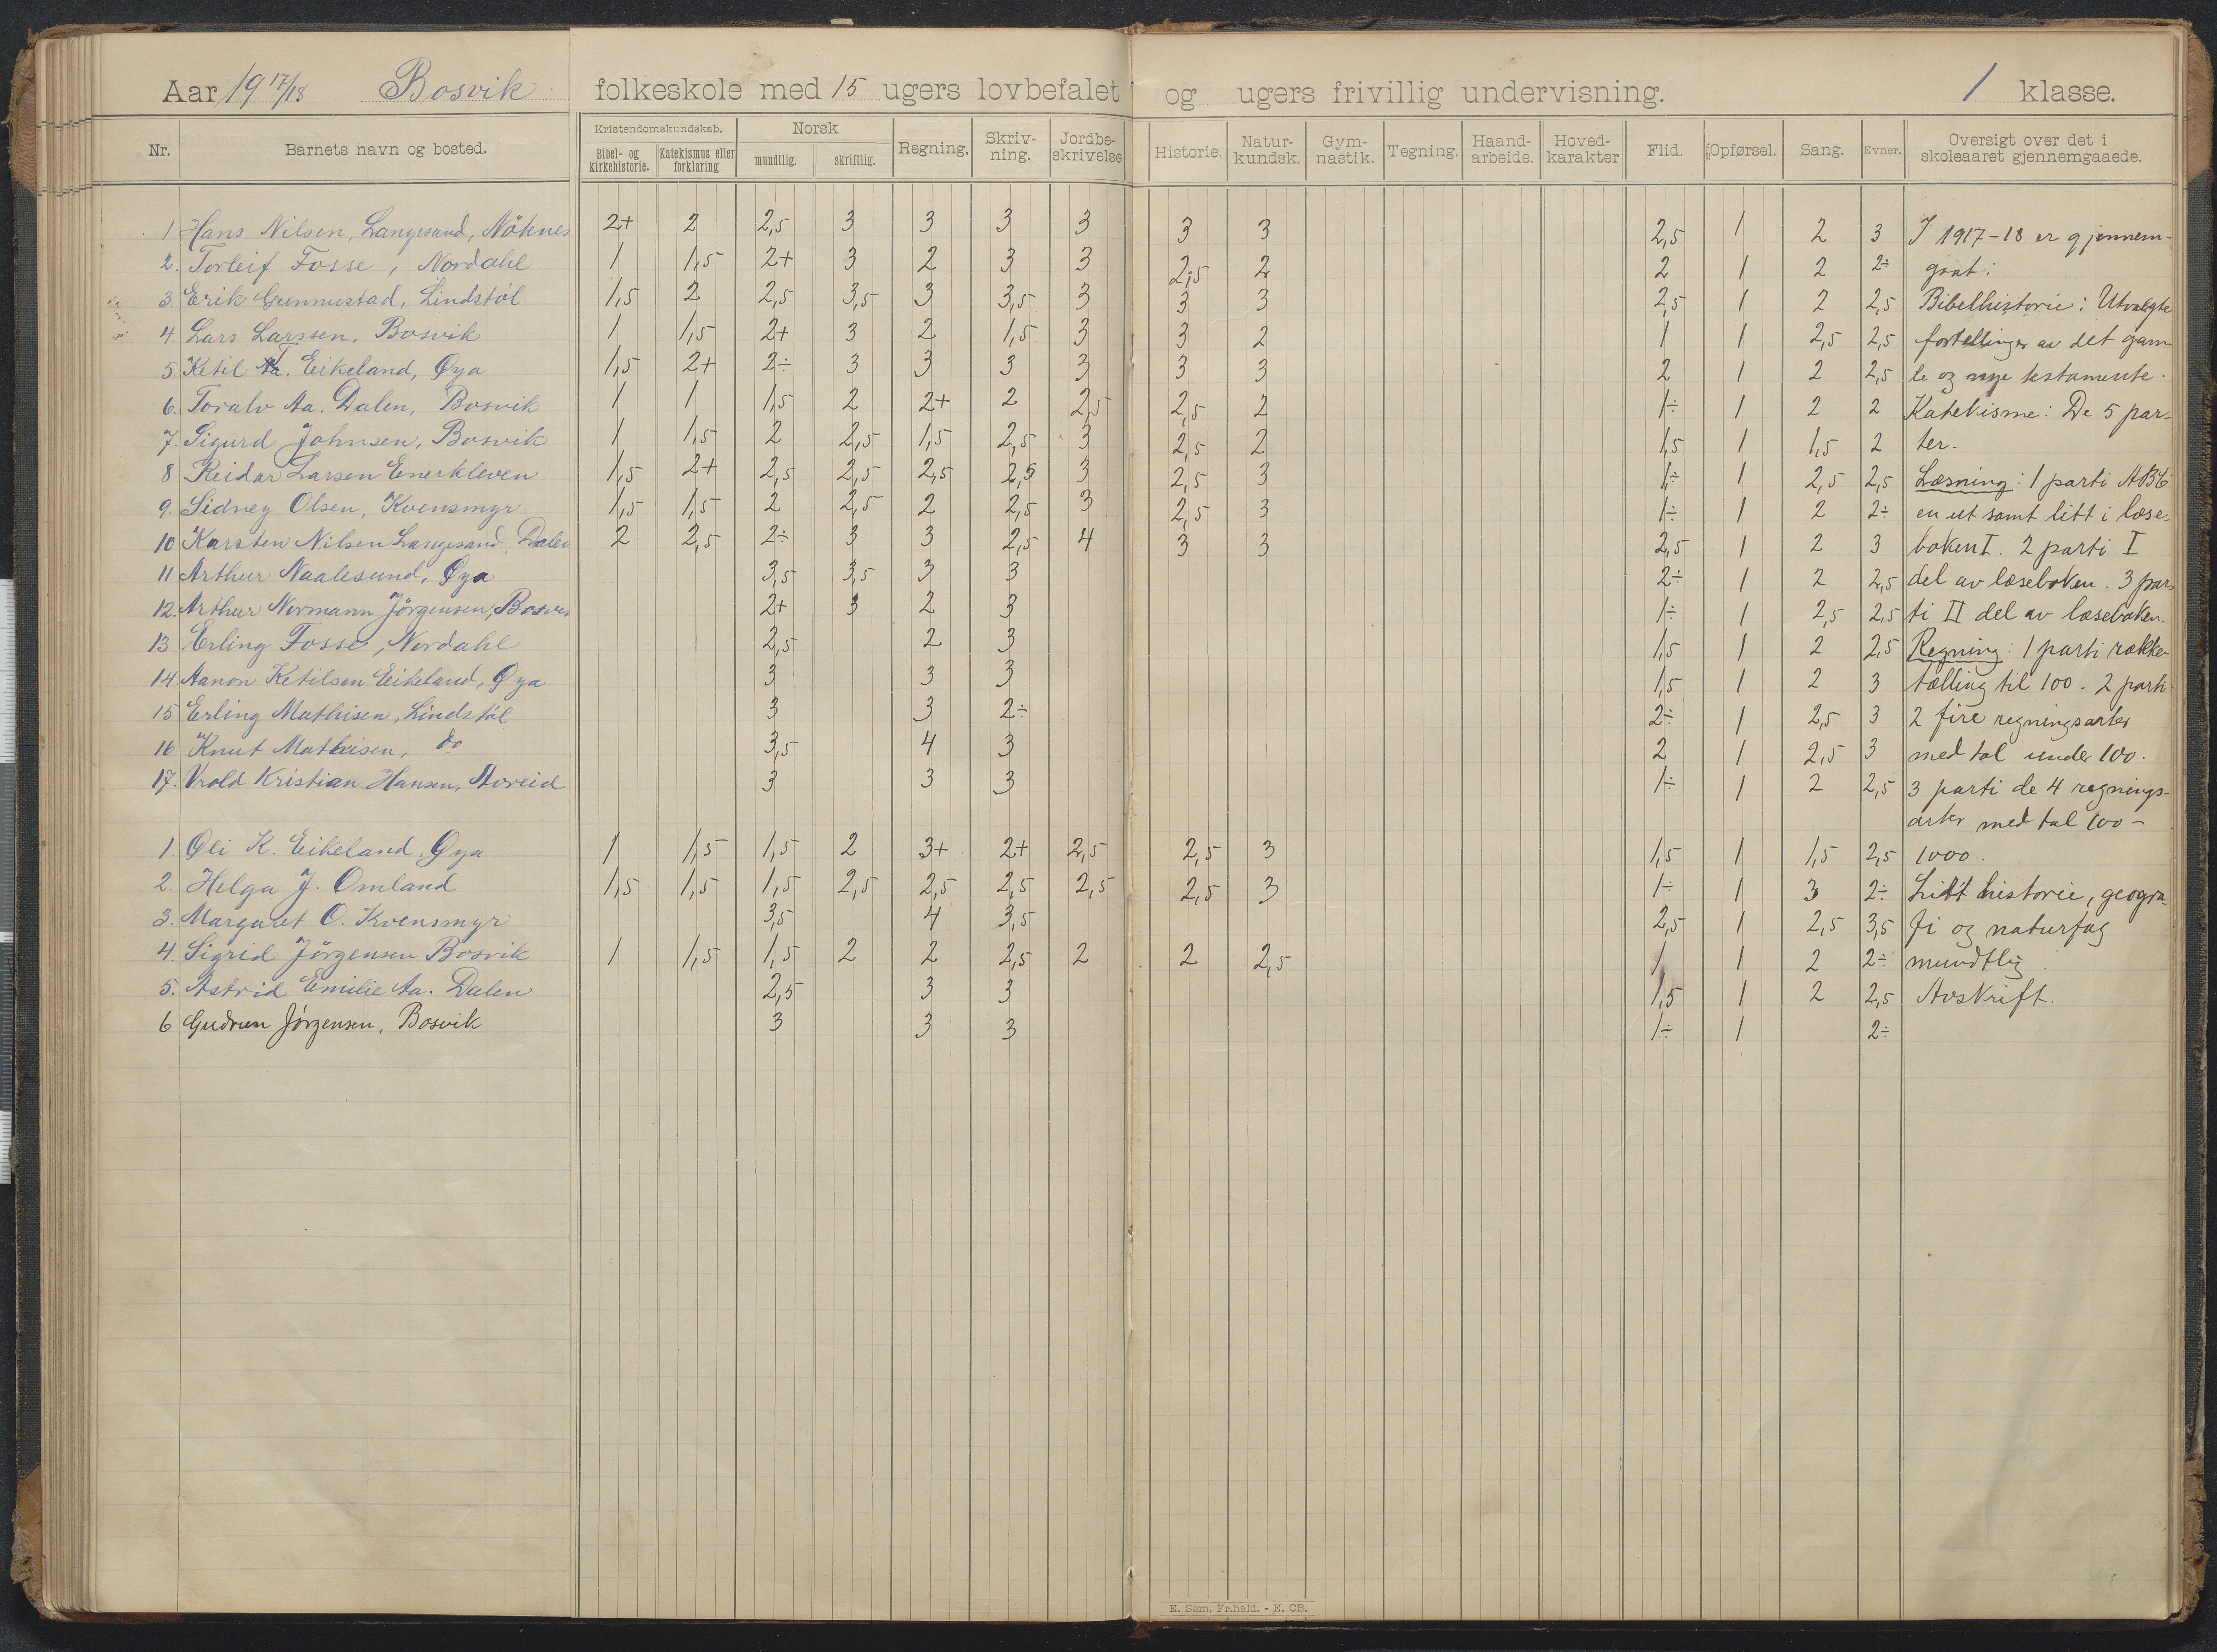 Aar 19 17/18 Bosvik folkeskole med 15 ugers lovbefalet og ugers frivillig undervisning. 1 klasse.
Nr. Barnets navn og bosted. Kristendomskundskab. Bibel- og kirkehistorie. Katekismus eller forklaring Norsk mundtlig. skriftlig. Regning. Skriv-ning. Jordbe-skrivelse Historie. Natur-kundsk. Gym-nastik. Tegning. Haand-arbeide. Hoved-karakter Flid. Opførsel. Sang. Evner. Oversigt over det i skoleaaret gjennemgaaede.
1 Hans Nilsen, Langesand, Nöknes 2+ 2 2,5 3 3 3 3 3 3 2,5 1 2 3 I 1917-18 er gjennem-
2. Torleif Fosse, Nordahl 1 1,5 2+ 3 2 3 3 2,5 2 2 1 2 2÷ gaat:
3. Erik Gunnustad, Lindstöl 1,5 2 2,5 3,5 3 3,5 3 3 3 2,5 1 2 2,5 Bibelhistorie: Utvalgte
4. Lars Larssen, Bosvik 1 1,5 2+ 3 2 1,5 3 3 2 1 1 2,5 2,5 fortellinger av det gam-
5 Ketil T. Eikeland, Øya 1,5 2+ 2÷ 3 3 3 3 3 3 2 1 2 2,5 le og nye testamente.
6. Toralv Aa. Dalen, Bosvik 1 1 1,5 2 2+ 2 2,5 2,5 2 1÷ 1 2 2 Katekisme: De 5 par-
7. Sigurd Johnsen, Bosvik 1 1,5 2 2,5 1,5 2,5 3 2,5 2 1,5 1 1,5 2 ter.
8 Reidar Larsen Enerkleven 1,5 2+ 2,5 2,5 2,5 2,5 3 2,5 3 1÷ 1 2,5 2,5 Læsning: 1 parti ABC
9. Sidney Olsen, Kvensmyr 1,5 1,5 2 2,5 2 2,5 3 2,5 3 1÷ 1 2 2÷ en ut samt litt i læse-
10 Karsten Nilsen Langesand, Dalen 2 2,5 2÷ 3 3 2,5 4 3 3 2,5 1 2 3 boken I. 2 parti I
11 Arthur Naalesund, Øya 3,5 3,5 3 3 2÷ 1 2 2,5 del av læseboken. 3 par-
12. Arthur Normann Jörgensen, Bosvik 2+ 3 2 3 1÷ 1 2,5 2,5 ti II del av læseboken.
13 Erling Fosse, Nordahl 2,5 2 3 1,5 1 2 2,5 Regning: 1 parti række-
14. Aanon Ketilsen Eikeland, Øya 3 3 3 1,5 1 2 3 tælling til 100. 2 parti
15 Erling Mathisen, Lindstöl 3 3 2÷ 2÷ 1 2,5 3 2 fire regningsarter
16 Knut Mathisen, do 3,5 4 3 2 1 2,5 3 med tal under 100.
17. Vrold Kristian Hansen, Aoreid 3 3 3 1÷ 1 2 2,5 3 parti de 4 regnings-
arter med tal 100-
1. Oli K. Eikeland, Øya 1 1,5 1,5 2 3+ 2+ 2,5 2,5 3 1,5 1 1,5 2,5 1000.
2. Helga J. Omland 1,5 1,5 1,5 2,5 2,5 2,5 2,5 2,5 3 1÷ 1 3 2÷ Litt historie, geogra-
3. Margaret O. Kvensmyr 3,5 4 3,5 2,5 1 2,5 3,5 fi og naturfag
4. Sigrid Jörgensen Bosvik 1 1,5 1,5 2 2 2,5 2 2 2,5 1 1 2 2÷ mundtlig.
5. Astrid Emilie Aa. Dalen 2,5 3 3 1,5 1 2 2,5 Avskrift.
6 Gudrun Jörgensen, Bosvik 3 3 3 1÷ 1 2÷
E. Sem, Fr.hald. - E. CB.